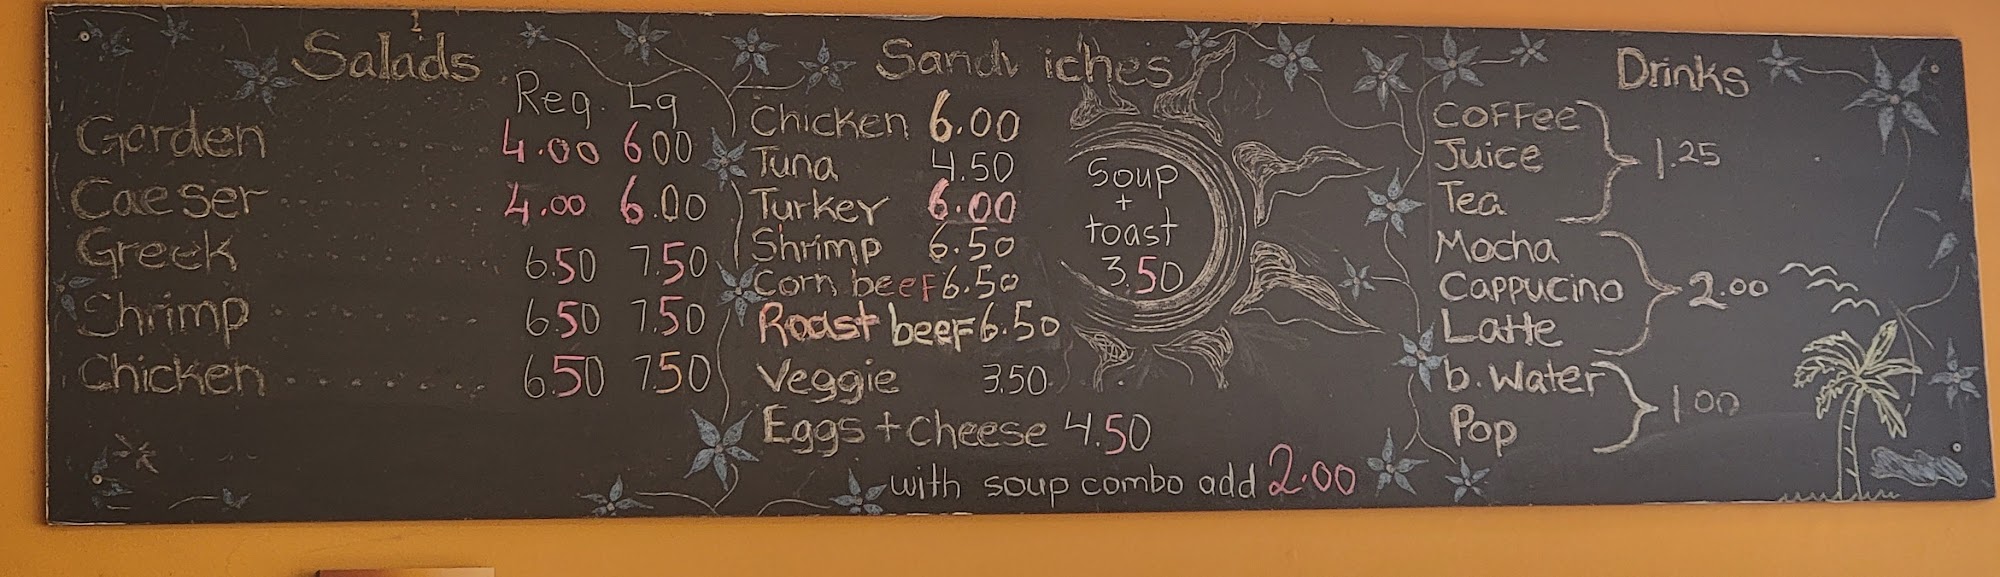 Salads
Reg. Lg
Garden 4.00 6.00
Caeser 4.00 6.00
Greek 6.50 7.50
Shrimp 6.50 7.50
Chicken 6.50 7.50
Sandwiches
Chicken 6.00
Tuna 4.50
Turkey 6.00
Shrimp 6.50
Corn beef 6.50
Roast beef 6.50
Veggie 3.50
Eggs + cheese 4.50
with soup combo add 2.00
Soup
+
toast
3.50
Drinks
Coffee
Juice 1.25
Tea
Mocha
Cappucino 2.00
Latte
b. Water
Pop 1.00